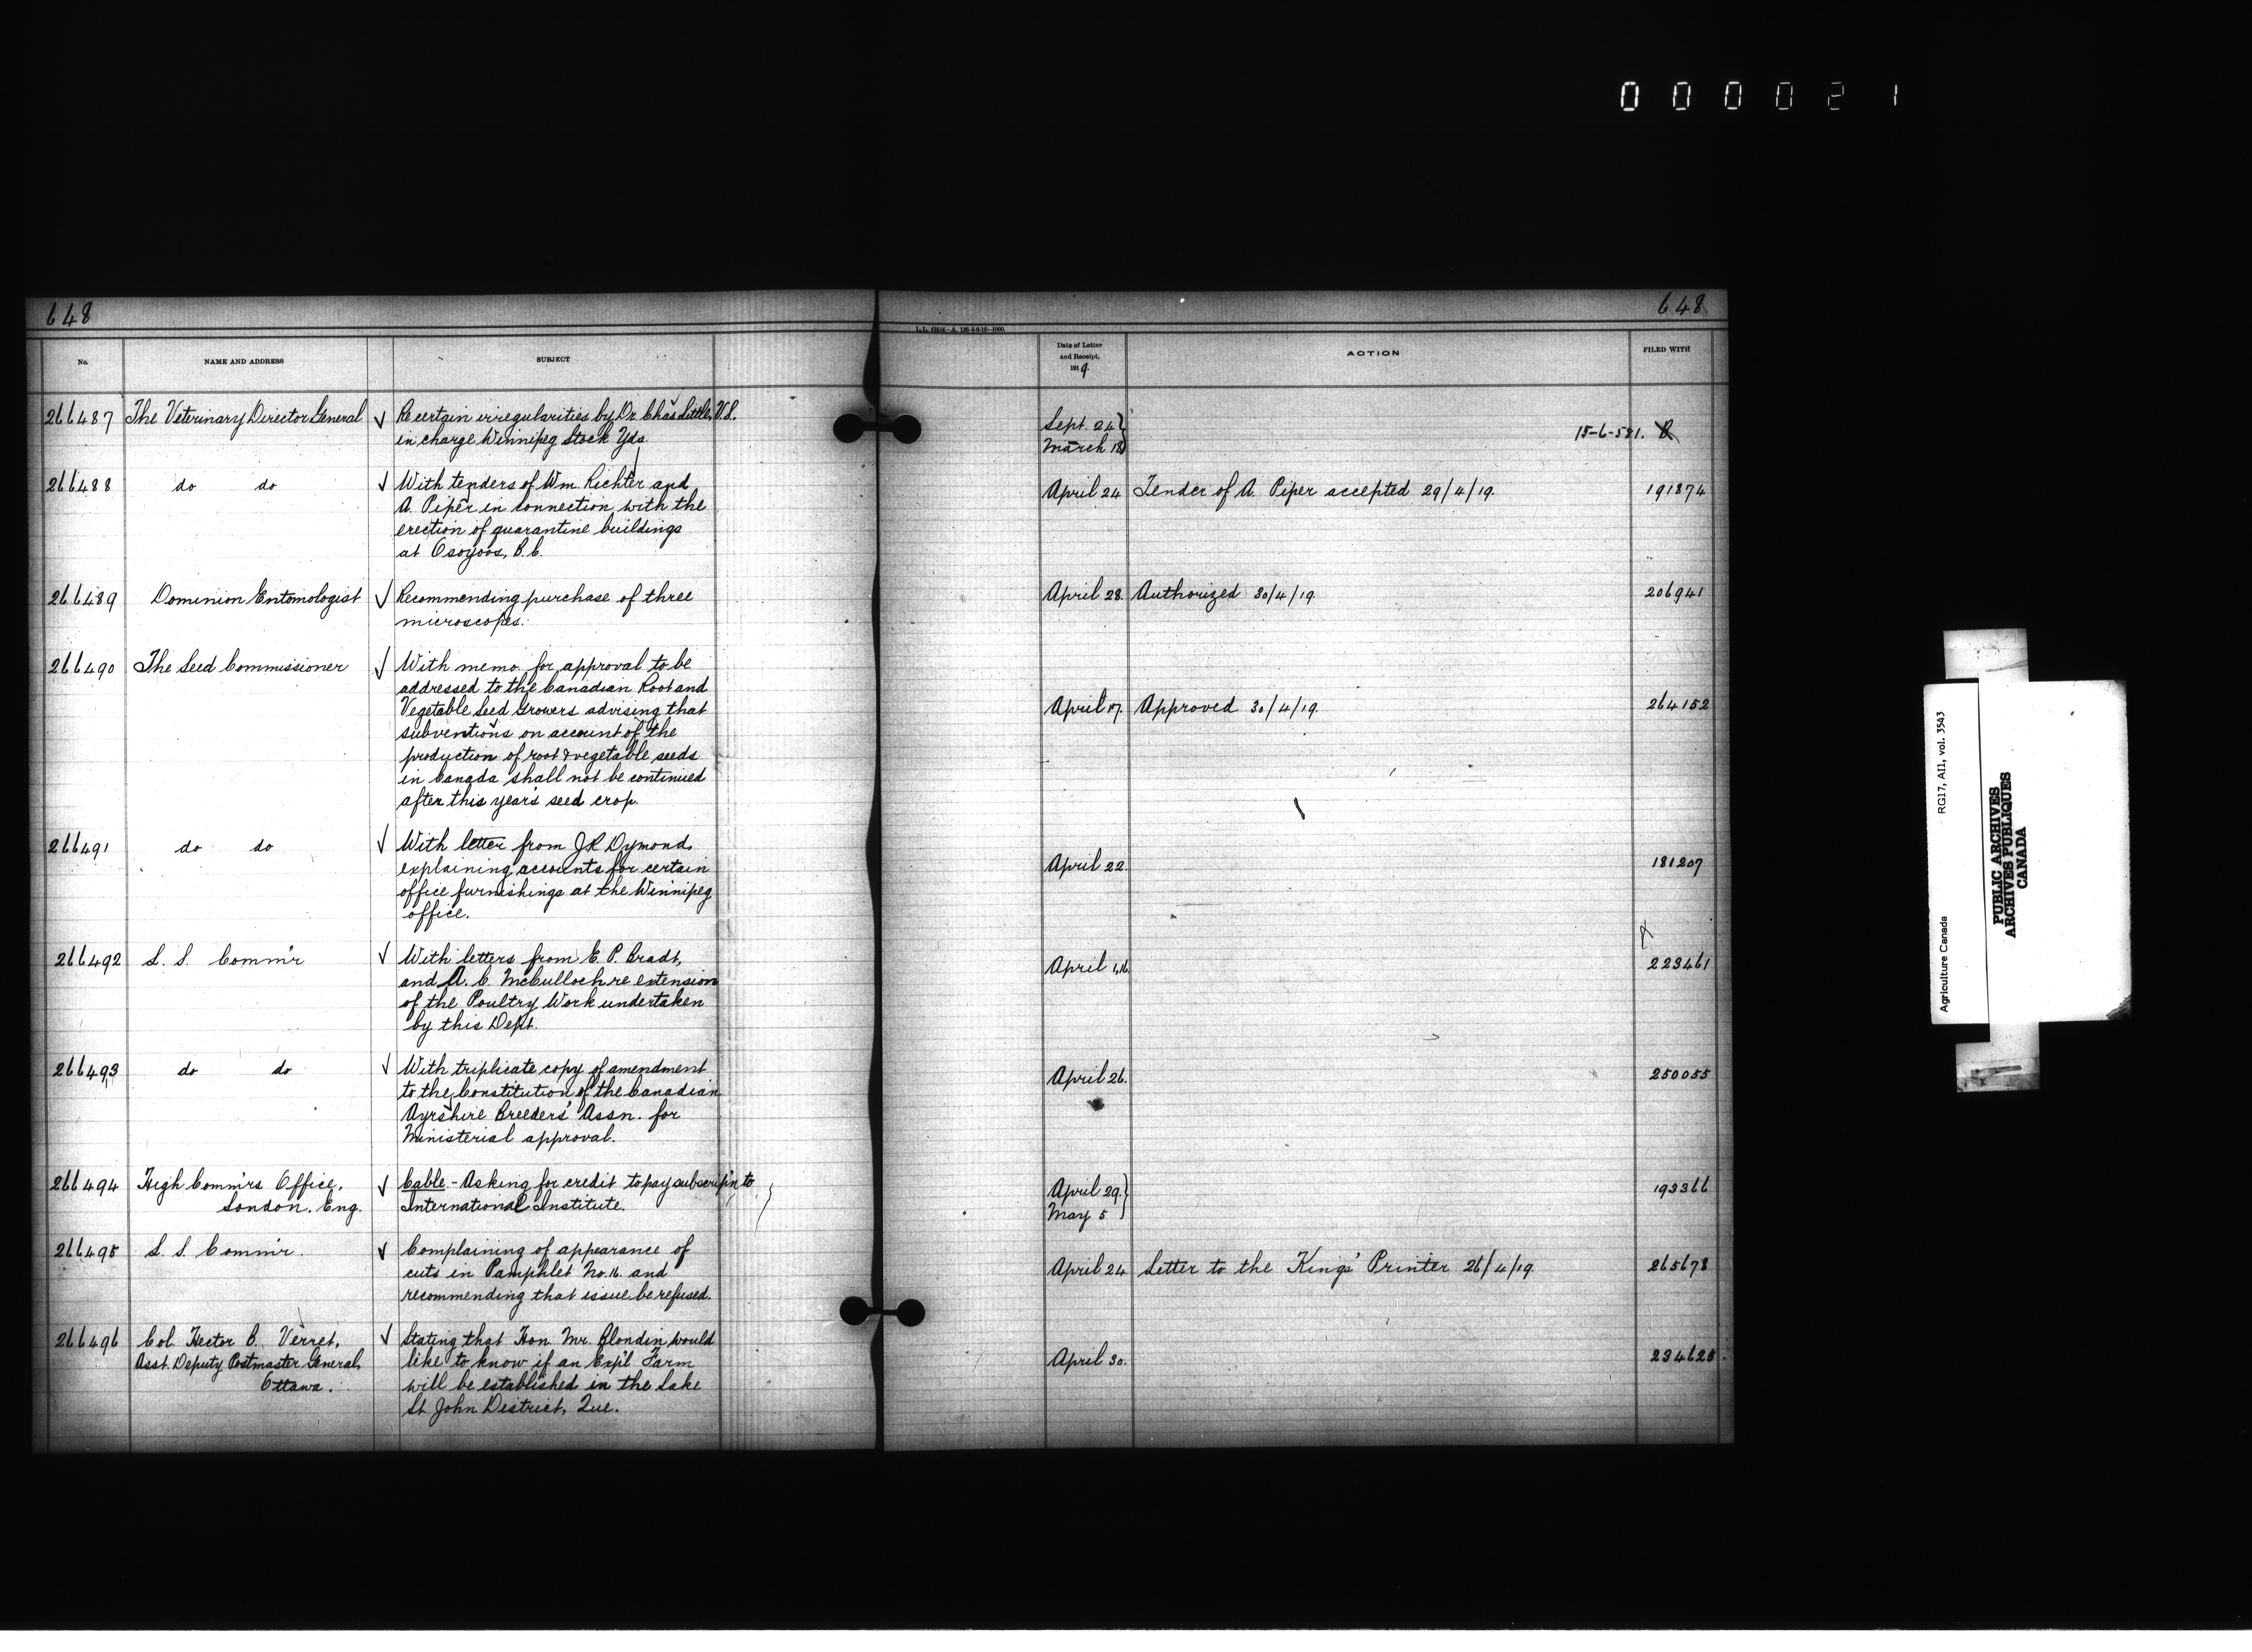 0 0 0 0 2 1
648
648
L.L. 62454-A. 128-5-6-18-1000.
No.
NAME AND ADDRESS
SUBJECT
Date of Letter
and Receipt,
1919.
ACTION
FILED WITH
266487 The Veterinary Director General √ Re certain irregularities by Dr. Chas Little, V.S. Sept. 24}
in charge Winnipeg Stock Yds. March 18} 15-6-581.
266488 do do √ With tenders of Wm. Richter and April 24 Tender of A. Piper accepted 29/4/19. 191874
A. Piper in connection with the
erection of quarantine buildings
at Osoyoos, B.C.
266489 Dominion Entomologist √ Recommending purchase of three April 28. Authorized 30/4/19. 206941
microscopes.
266490 The Seed Commissioner √ With memo for approval to be
addressed to the Canadian Root and
Vegetable Seed Growers advising that April 17. Approved 30/4/19. 264152
subventions on account of the
production of root & vegetable seeds
in Canada shall not be continued
after this year's seed crop.
266491 do do √ With letter from J.R. Dymond,
explaining accounts for certain April 22. 181207
office furnishings at the Winnipeg
office.
266492 L. S. Comm'r √ With letters from E. P. Bradt, April 1,16. 223461
and A. C. McCulloch re extension
of the Poultry Work undertaken
by this Dept.
266493 do do √ With triplicate copy of amendment April 26. 250055
to the Constitution of the Canadian
Ayrshire Breeders' Assn. for
Ministerial approval.
266494 High Comm'rs Office, √ Cable.- Asking for credit to pay subscrip'n to April 29.} 193366
London. Eng. International Institute. May 5}
266495 L. S. Comm'r. √ Complaining of appearance of
cuts in Pamphlet No. 16. and April 24 Letter to the Kings' Printer 26/4/19. 265678
recommending that issue be refused.
266496 Col. Hector B. Verret, √ Stating that Hon. Mr. Blondin would
Asst. Deputy Postmaster General, like to know if an Exp'l Farm April 30. 234625.
Ottawa. will be established in the Lake
St John District, Que.
Agriculture Canada RG17, A11, vol. 3543
PUBLIC ARCHIVES
ARCHIVES PUBLIQUES
CANADA